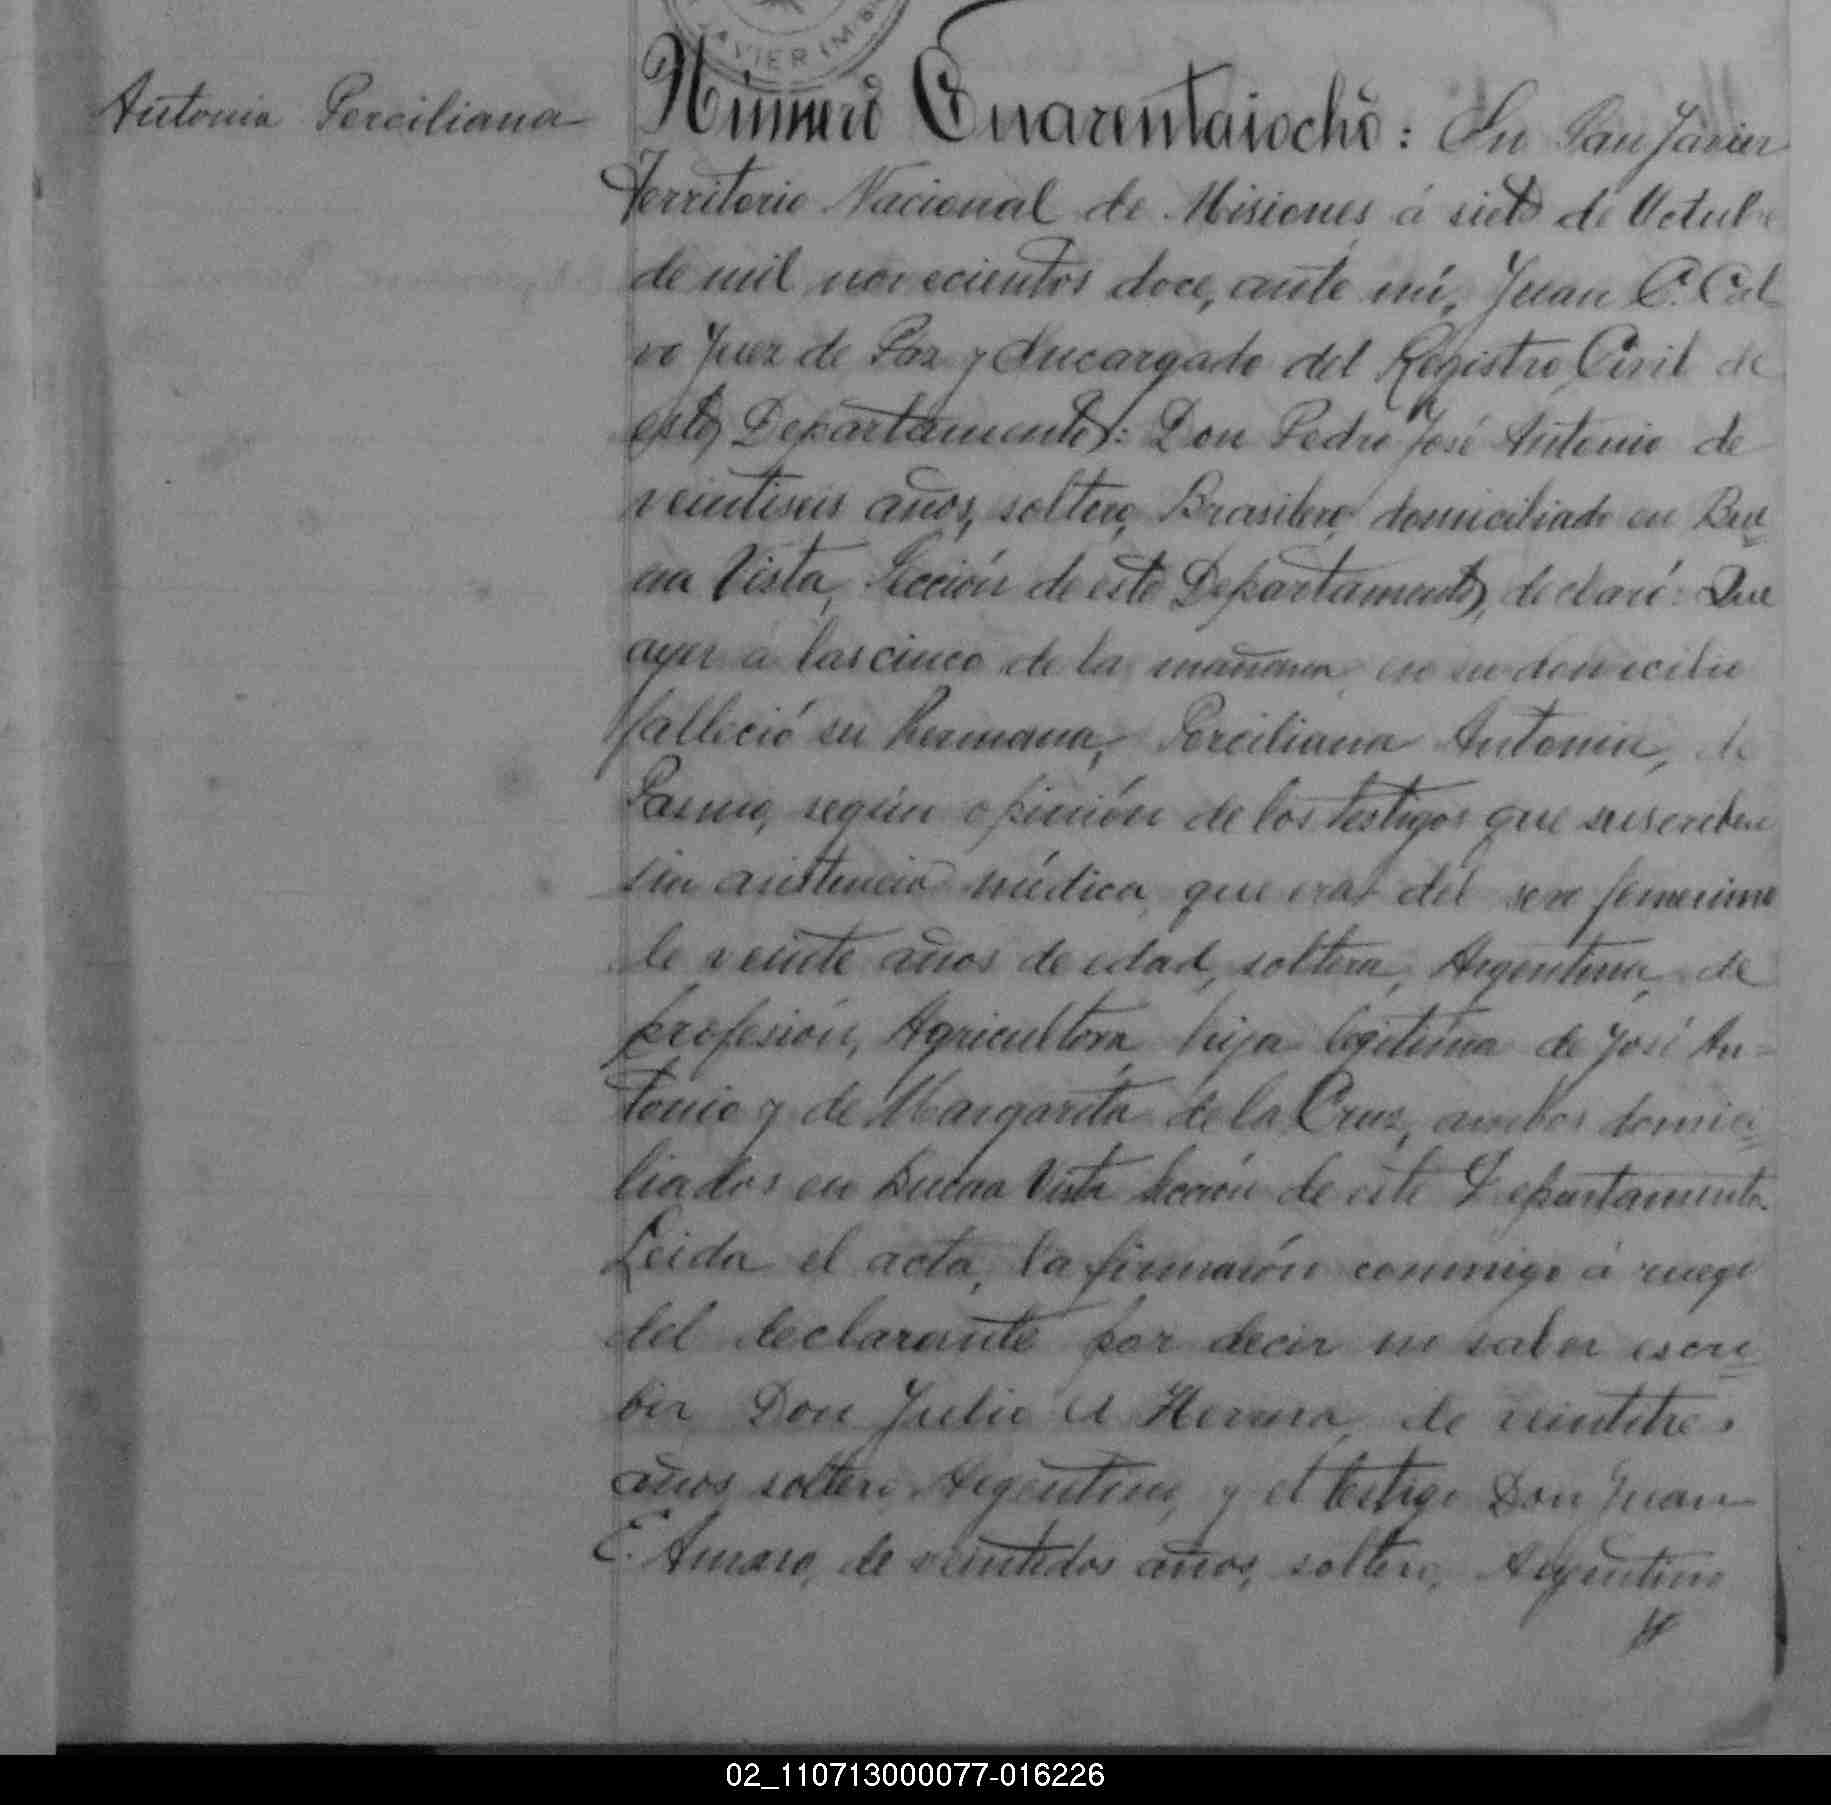 AVIER (M
Antonia Perciliana
Número Cuarentaiocho: En San Javier
Territorio Nacional de Misiones á siete de Octubre
de mil novecientos doce, ante mí, Juan C. Cal
vo Juez de Paz y Encargado del Registro Civil de
este Departamento: Don Pedro José Antonio de
veintiseis años, soltero, Brasilero, domiciliado en Bue
na Vista, Sección de este Departamento, declaró: Que
ayer á las cinco de la mañana en su domicilio
falleció su hermana, Perciliana Antonia, de
Pasmo, según opinión de los testigos que suscriben
sin asistencia médica, que era del sexo femenino
de veinte años de edad, soltera, Argentina, de
profesión, Agricultora, hija legítima de José An=
tonio y de Margarita de la Cruz, ambos domici
liados en Buena Vista Sección de este Departamento.
Leida el acta, la firmarón conmigo á ruego
del declarante por decir no saber escri
bir Don Julio A Herrera, de veintitres
años, soltero, Argentino, y el testigo Don Juan
E. Amaro, de veintidos años, soltero, Argentino
02_110713000077-016226